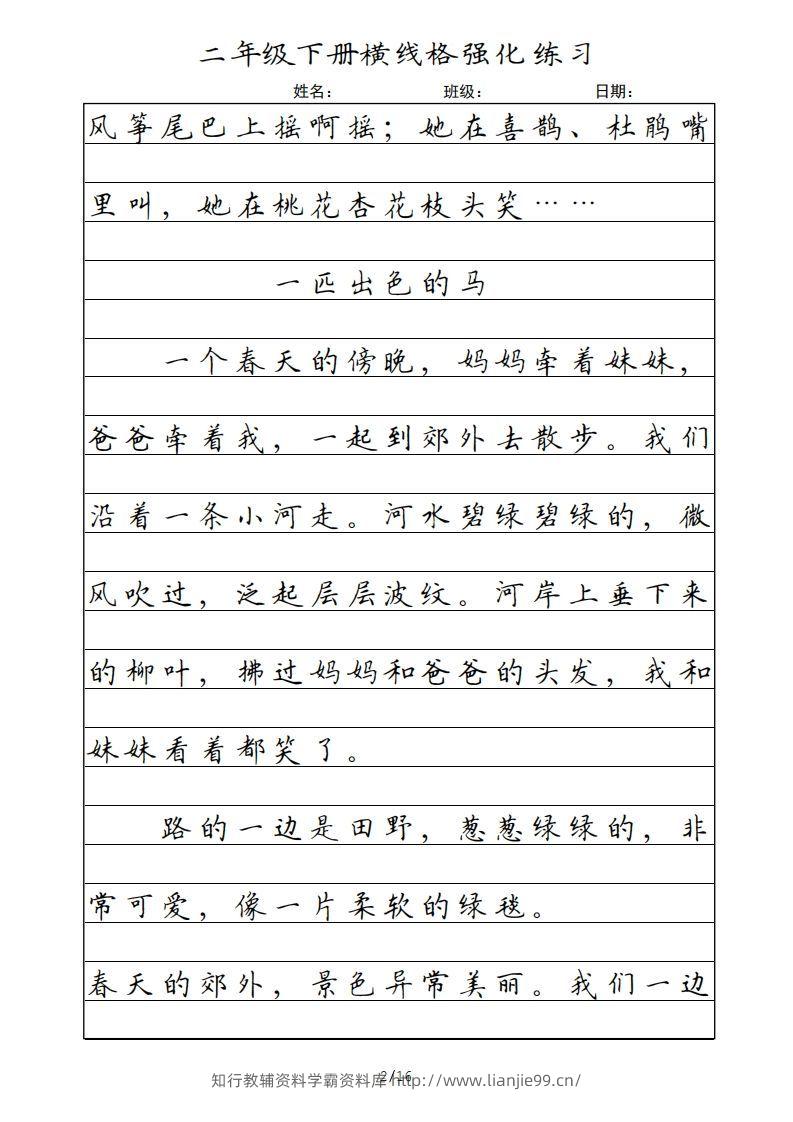 二年级下册横线格强化练习
姓名： 班级： 日期：
风筝尾巴上摇啊摇；她在喜鹊、杜鹃嘴
里叫，她在桃花杏花枝头笑……
一匹出色的马
一个春天的傍晚，妈妈牵着妹妹，
爸爸牵着我，一起到郊外去散步。我们
沿着一条小河走。河水碧绿碧绿的，微
风吹过，泛起层层波纹。河岸上垂下来
的柳叶，拂过妈妈和爸爸的头发，我和
妹妹看着都笑了。
路的一边是田野，葱葱绿绿的，非
常可爱，像一片柔软的绿毯。
春天的郊外，景色异常美丽。我们一边
2/16
知行教辅资料学霸资料库 http://www.lianjie99.cn/